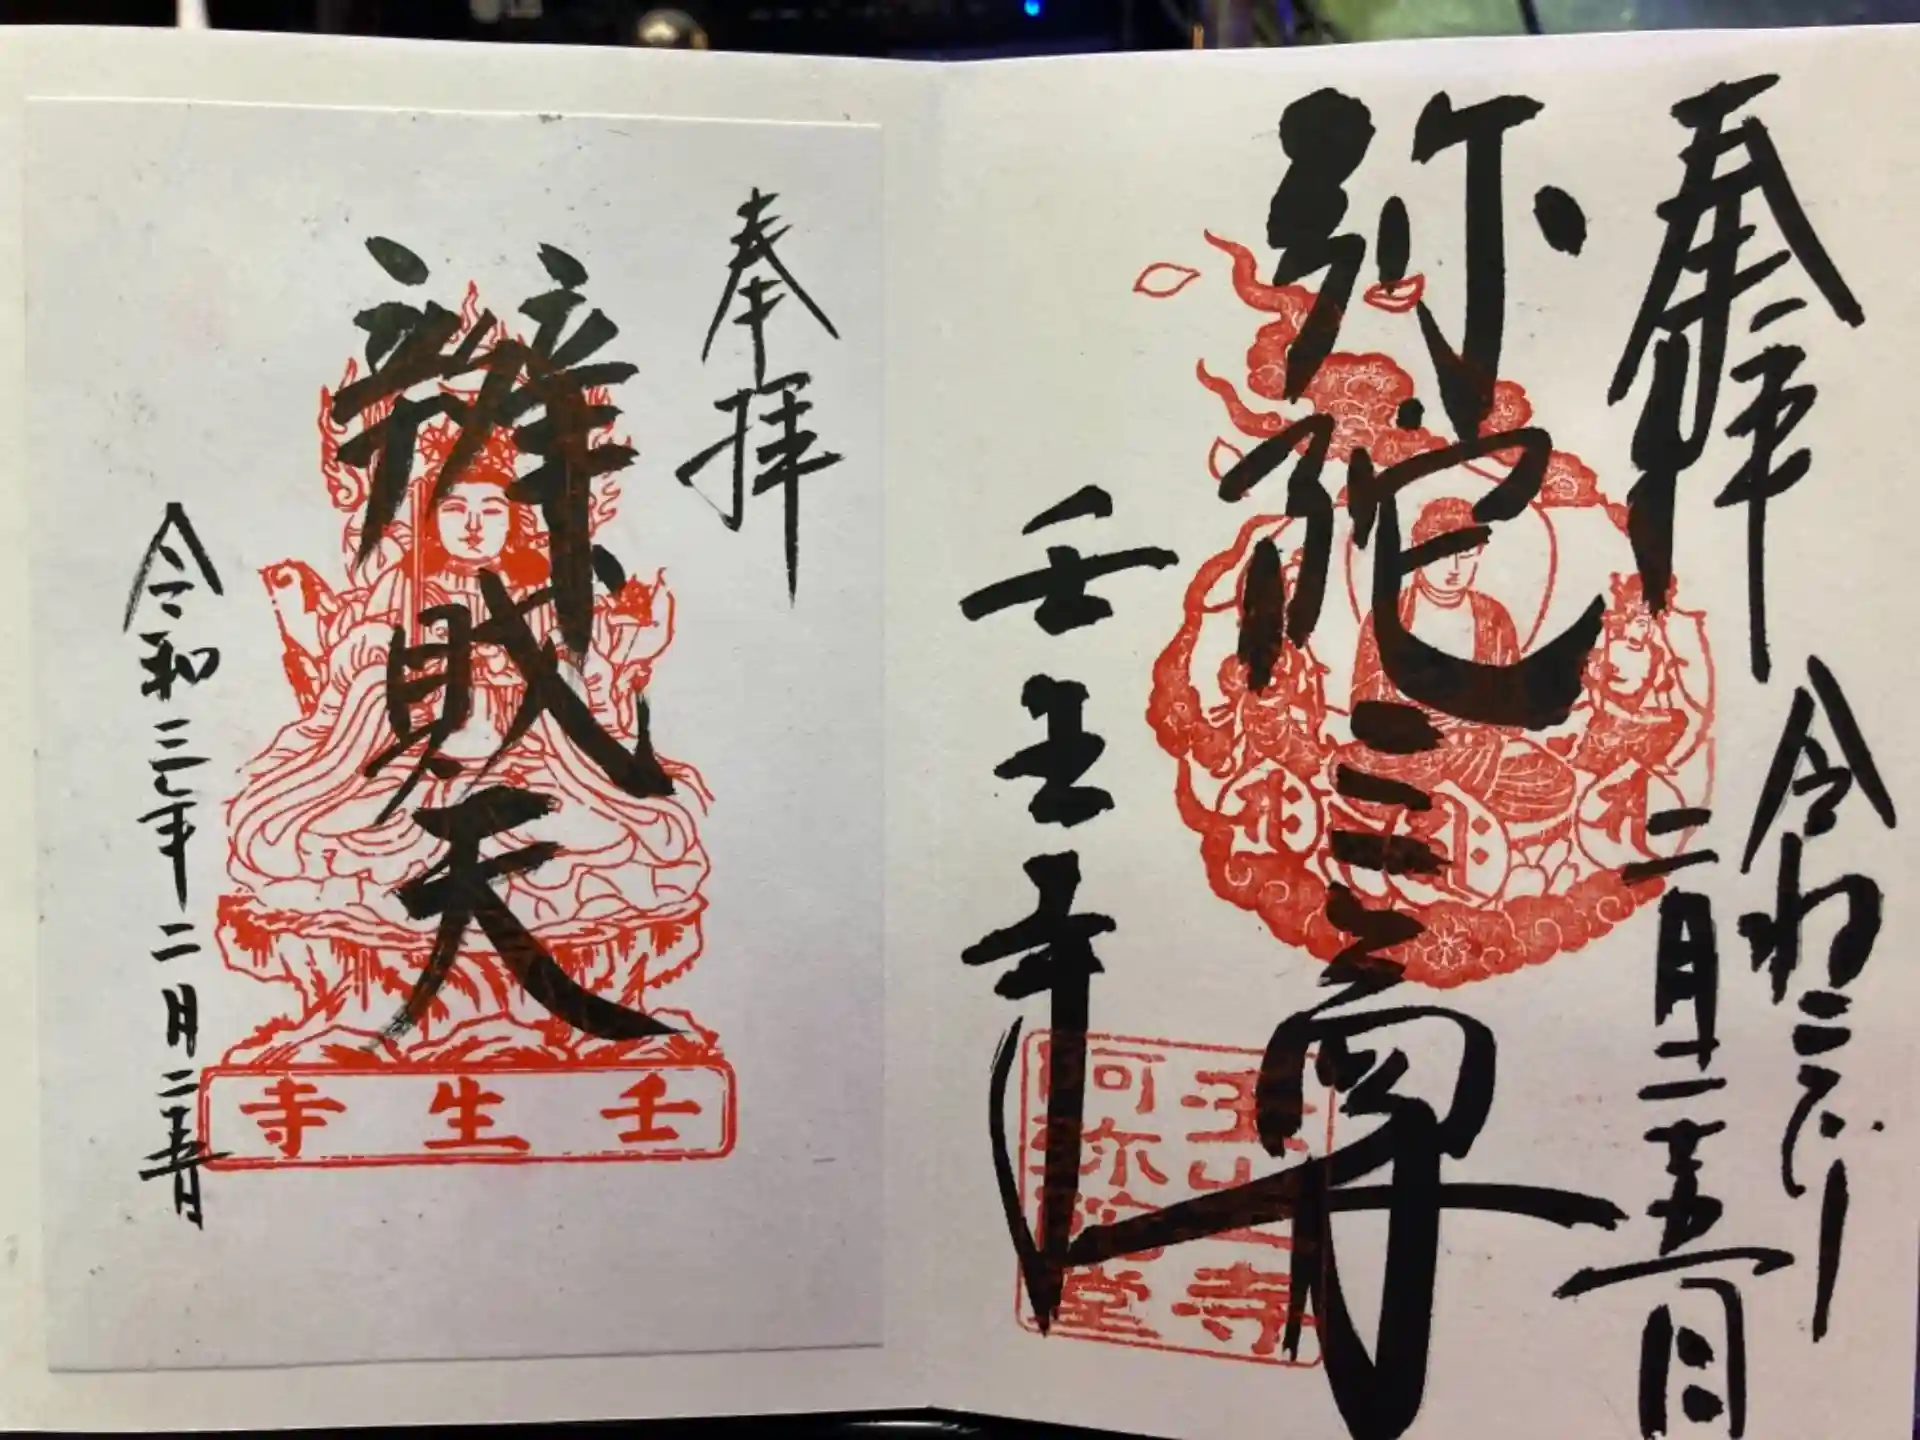 奉拝
令和三年
二月二十五日
弥陀三尊
壬生寺
壬生寺
阿弥陀堂
奉拝
辨財天
令和三年二月二十五日
壬生寺